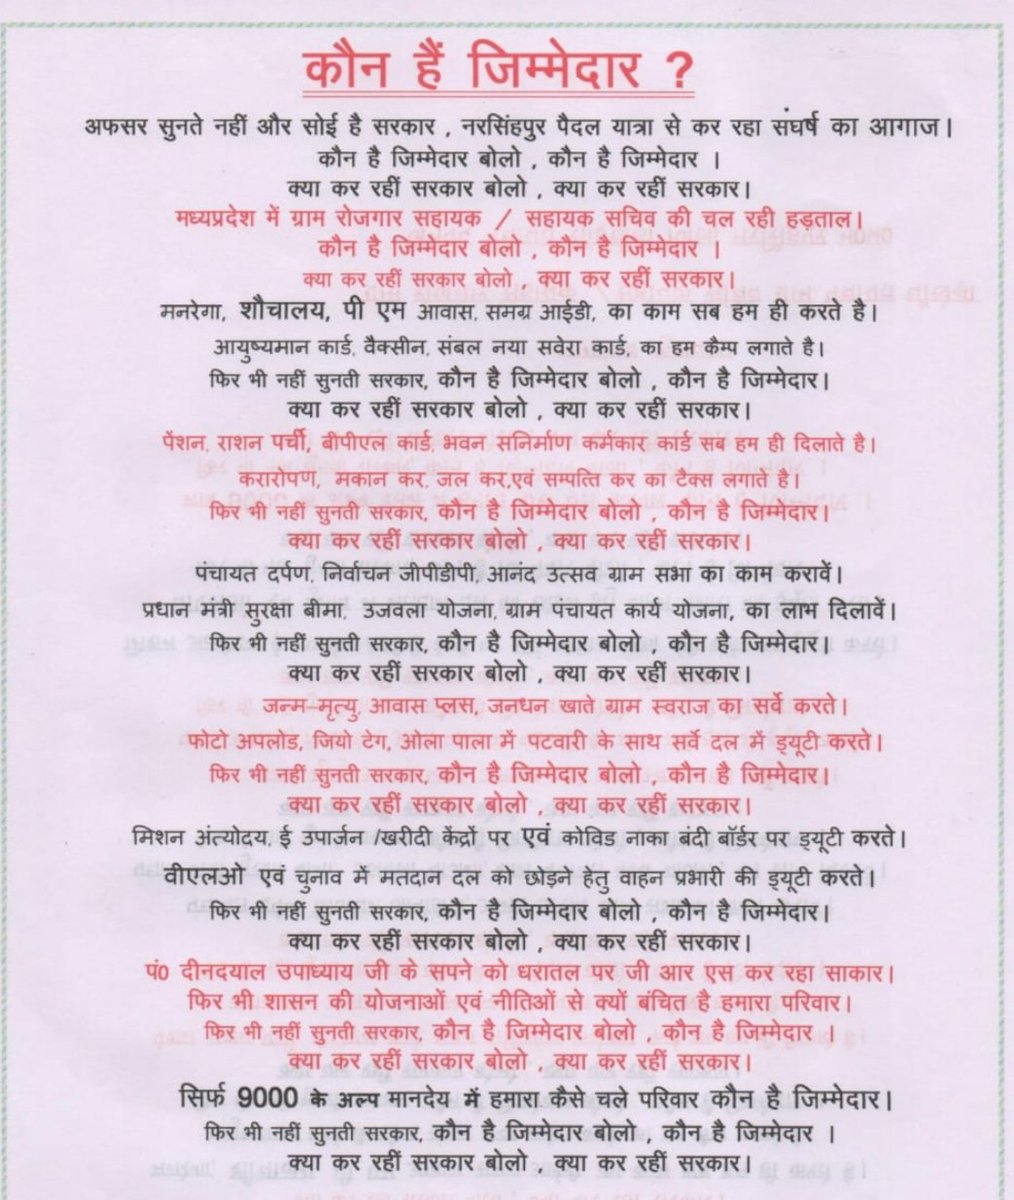 कौन हैं जिम्मेदार ?
अफसर सुनते नहीं और सोई है सरकार , नरसिंहपुर पैदल यात्रा से कर रहा संघर्ष का आगाज।
कौन है जिम्मेदार बोलो , कौन है जिम्मेदार ।
क्या कर रहीं सरकार बोलो , क्या कर रहीं सरकार।
मध्यप्रदेश में ग्राम रोजगार सहायक / सहायक सचिव की चल रही हड़ताल।
कौन है जिम्मेदार बोलो , कौन है जिम्मेदार ।
क्या कर रहीं सरकार बोलो , क्या कर रहीं सरकार।
मनरेगा, शौचालय, पी एम आवास, समग्र आईडी, का काम सब हम ही करते है।
आयुष्यमान कार्ड, वैक्सीन, संबल नया सवेरा कार्ड, का हम कैम्प लगाते है।
फिर भी नहीं सुनती सरकार, कौन है जिम्मेदार बोलो , कौन है जिम्मेदार।
क्या कर रहीं सरकार बोलो , क्या कर रहीं सरकार।
पेंशन, राशन पर्ची, बीपीएल कार्ड, भवन सनिर्माण कर्मकार कार्ड सब हम ही दिलाते है।
करारोपण, मकान कर, जल कर,एवं सम्पत्ति कर का टेक्स लगाते है।
फिर भी नहीं सुनती सरकार, कौन है जिम्मेदार बोलो , कौन है जिम्मेदार।
क्या कर रहीं सरकार बोलो , क्या कर रहीं सरकार।
पंचायत दर्पण, निर्वाचन जीपीडीपी, आनंद उत्सव ग्राम सभा का काम करावें।
प्रधान मंत्री सुरक्षा बीमा, उजवला योजना, ग्राम पंचायत कार्य योजना, का लाभ दिलावें।
फिर भी नहीं सुनती सरकार, कौन है जिम्मेदार बोलो , कौन है जिम्मेदार।
क्या कर रहीं सरकार बोलो , क्या कर रहीं सरकार।
जन्म-मृत्यु, आवास प्लस, जनधन खाते ग्राम स्वराज का सर्वे करते।
फोटो अपलोड, जियो टेग, ओला पाला में पटवारी के साथ सर्वे दल में ड्यूटी करते।
फिर भी नहीं सुनती सरकार, कौन है जिम्मेदार बोलो , कौन है जिम्मेदार।
क्या कर रहीं सरकार बोलो , क्या कर रहीं सरकार।
मिशन अंत्योदय, ई उपार्जन /खरीदी केंद्रों पर एवं कोविड नाका बंदी बॉर्डर पर ड्यूटी करते।
वीएलओ एवं चुनाव में मतदान दल को छोड़ने हेतु वाहन प्रभारी की ड्यूटी करते।
फिर भी नहीं सुनती सरकार, कौन है जिम्मेदार बोलो , कौन है जिम्मेदार।
क्या कर रहीं सरकार बोलो , क्या कर रहीं सरकार।
पं0 दीनदयाल उपाध्याय जी के सपने को धरातल पर जी आर एस कर रहा साकार।
फिर भी शासन की योजनाओं एवं नीतिओं से क्यों बंचित है हमारा परिवार।
फिर भी नहीं सुनती सरकार, कौन है जिम्मेदार बोलो , कौन है जिम्मेदार ।
क्या कर रहीं सरकार बोलो , क्या कर रहीं सरकार।
सिर्फ 9000 के अल्प मानदेय में हमारा कैसे चले परिवार कौन है जिम्मेदार।
फिर भी नहीं सुनती सरकार, कौन है जिम्मेदार बोलो , कौन है जिम्मेदार ।
क्या कर रहीं सरकार बोलो , क्या कर रहीं सरकार।